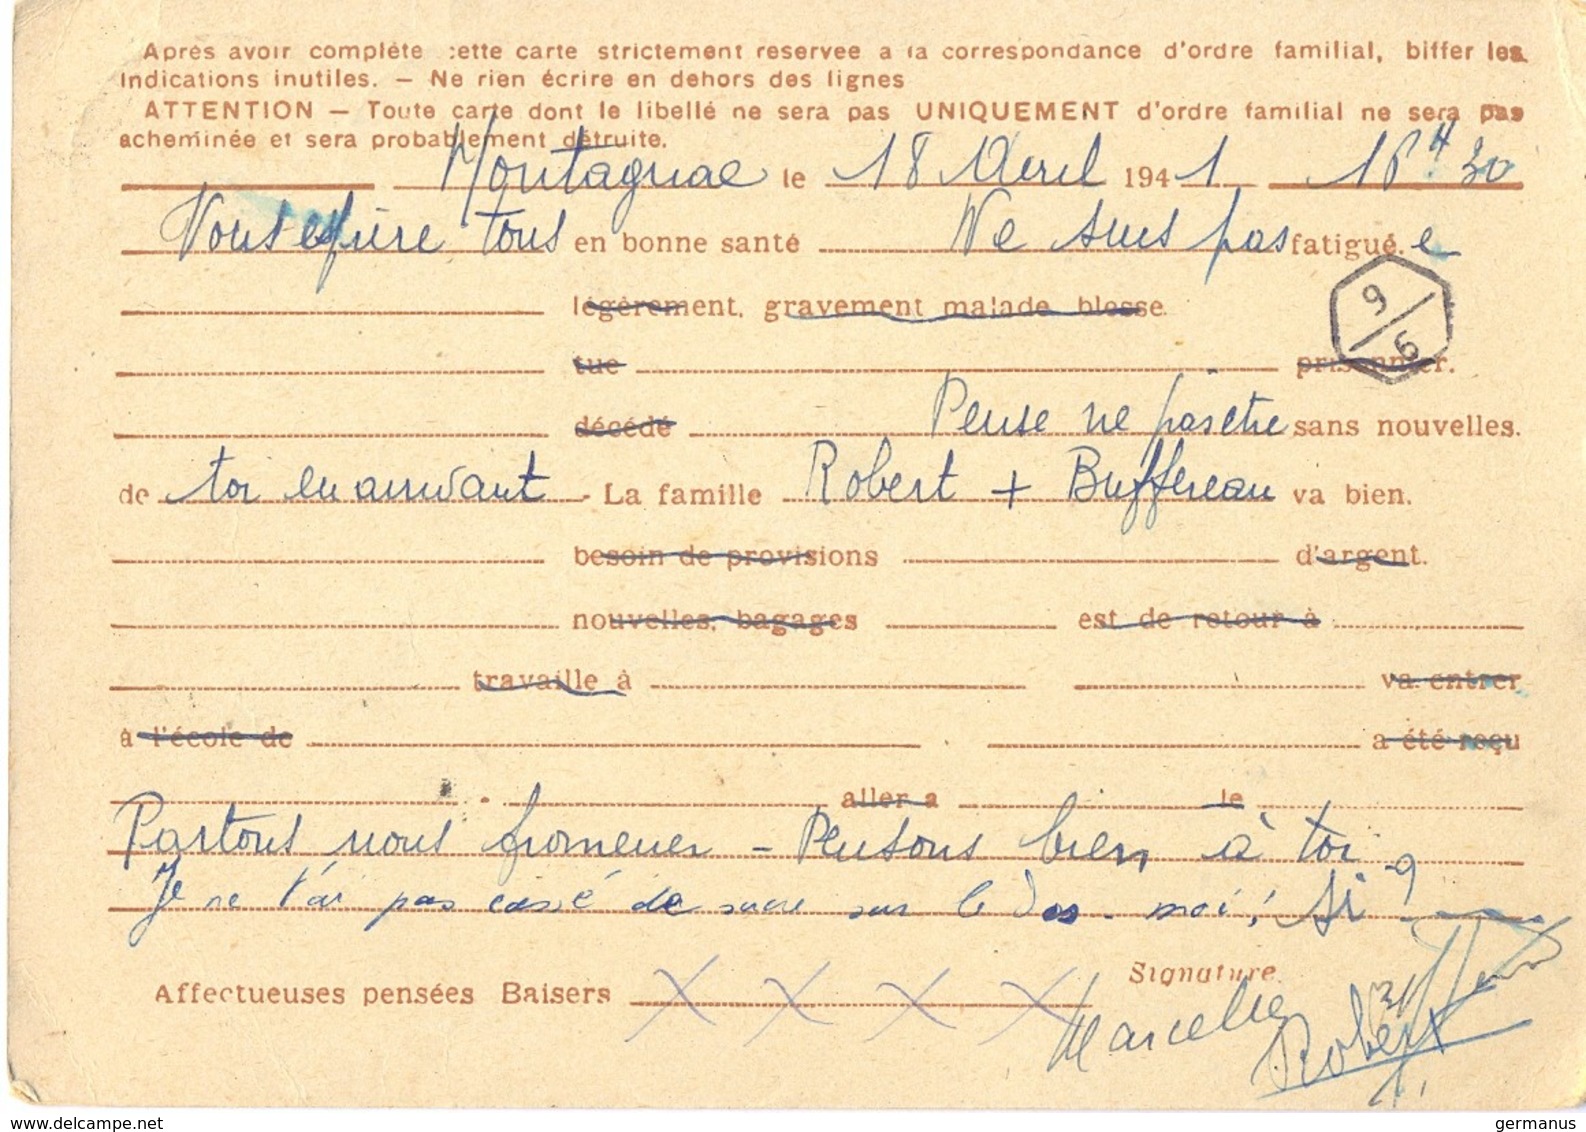 Après avoir complété cette carte strictement reservee a la correspondance d'ordre familial, biffer les
indications inutiles. — Ne rien écrire en dehors des lignes
ATTENTION — Toute carte dont le libellé ne sera pas UNIQUEMENT d'ordre familial ne sera pas
acheminée et sera probablement détruite.
Montagnac le 18 Avril 1941 16H30
Vous espère tous en bonne santé Ne suis pas fatigué.e
légèrement, gravement malade blesse
9/5
tue prisonnier.
décédé Pense ne pas être sans nouvelles.
de toi en arrivant - La famille Robert + Buffereau va bien.
besoin de provisions d'argent.
nouvelles, bagages est de retour à
travaille à va entrer
à l'école de a été reçu
aller a le
Partons nous promener - Pensons bien à toi
Je ne t'ai pas cassé de sucre sur le dos - moi! Si?
Affectueuses pensées Baisers X X X X Signature
Marcelle
Robert
www.delcampe.net
germanus